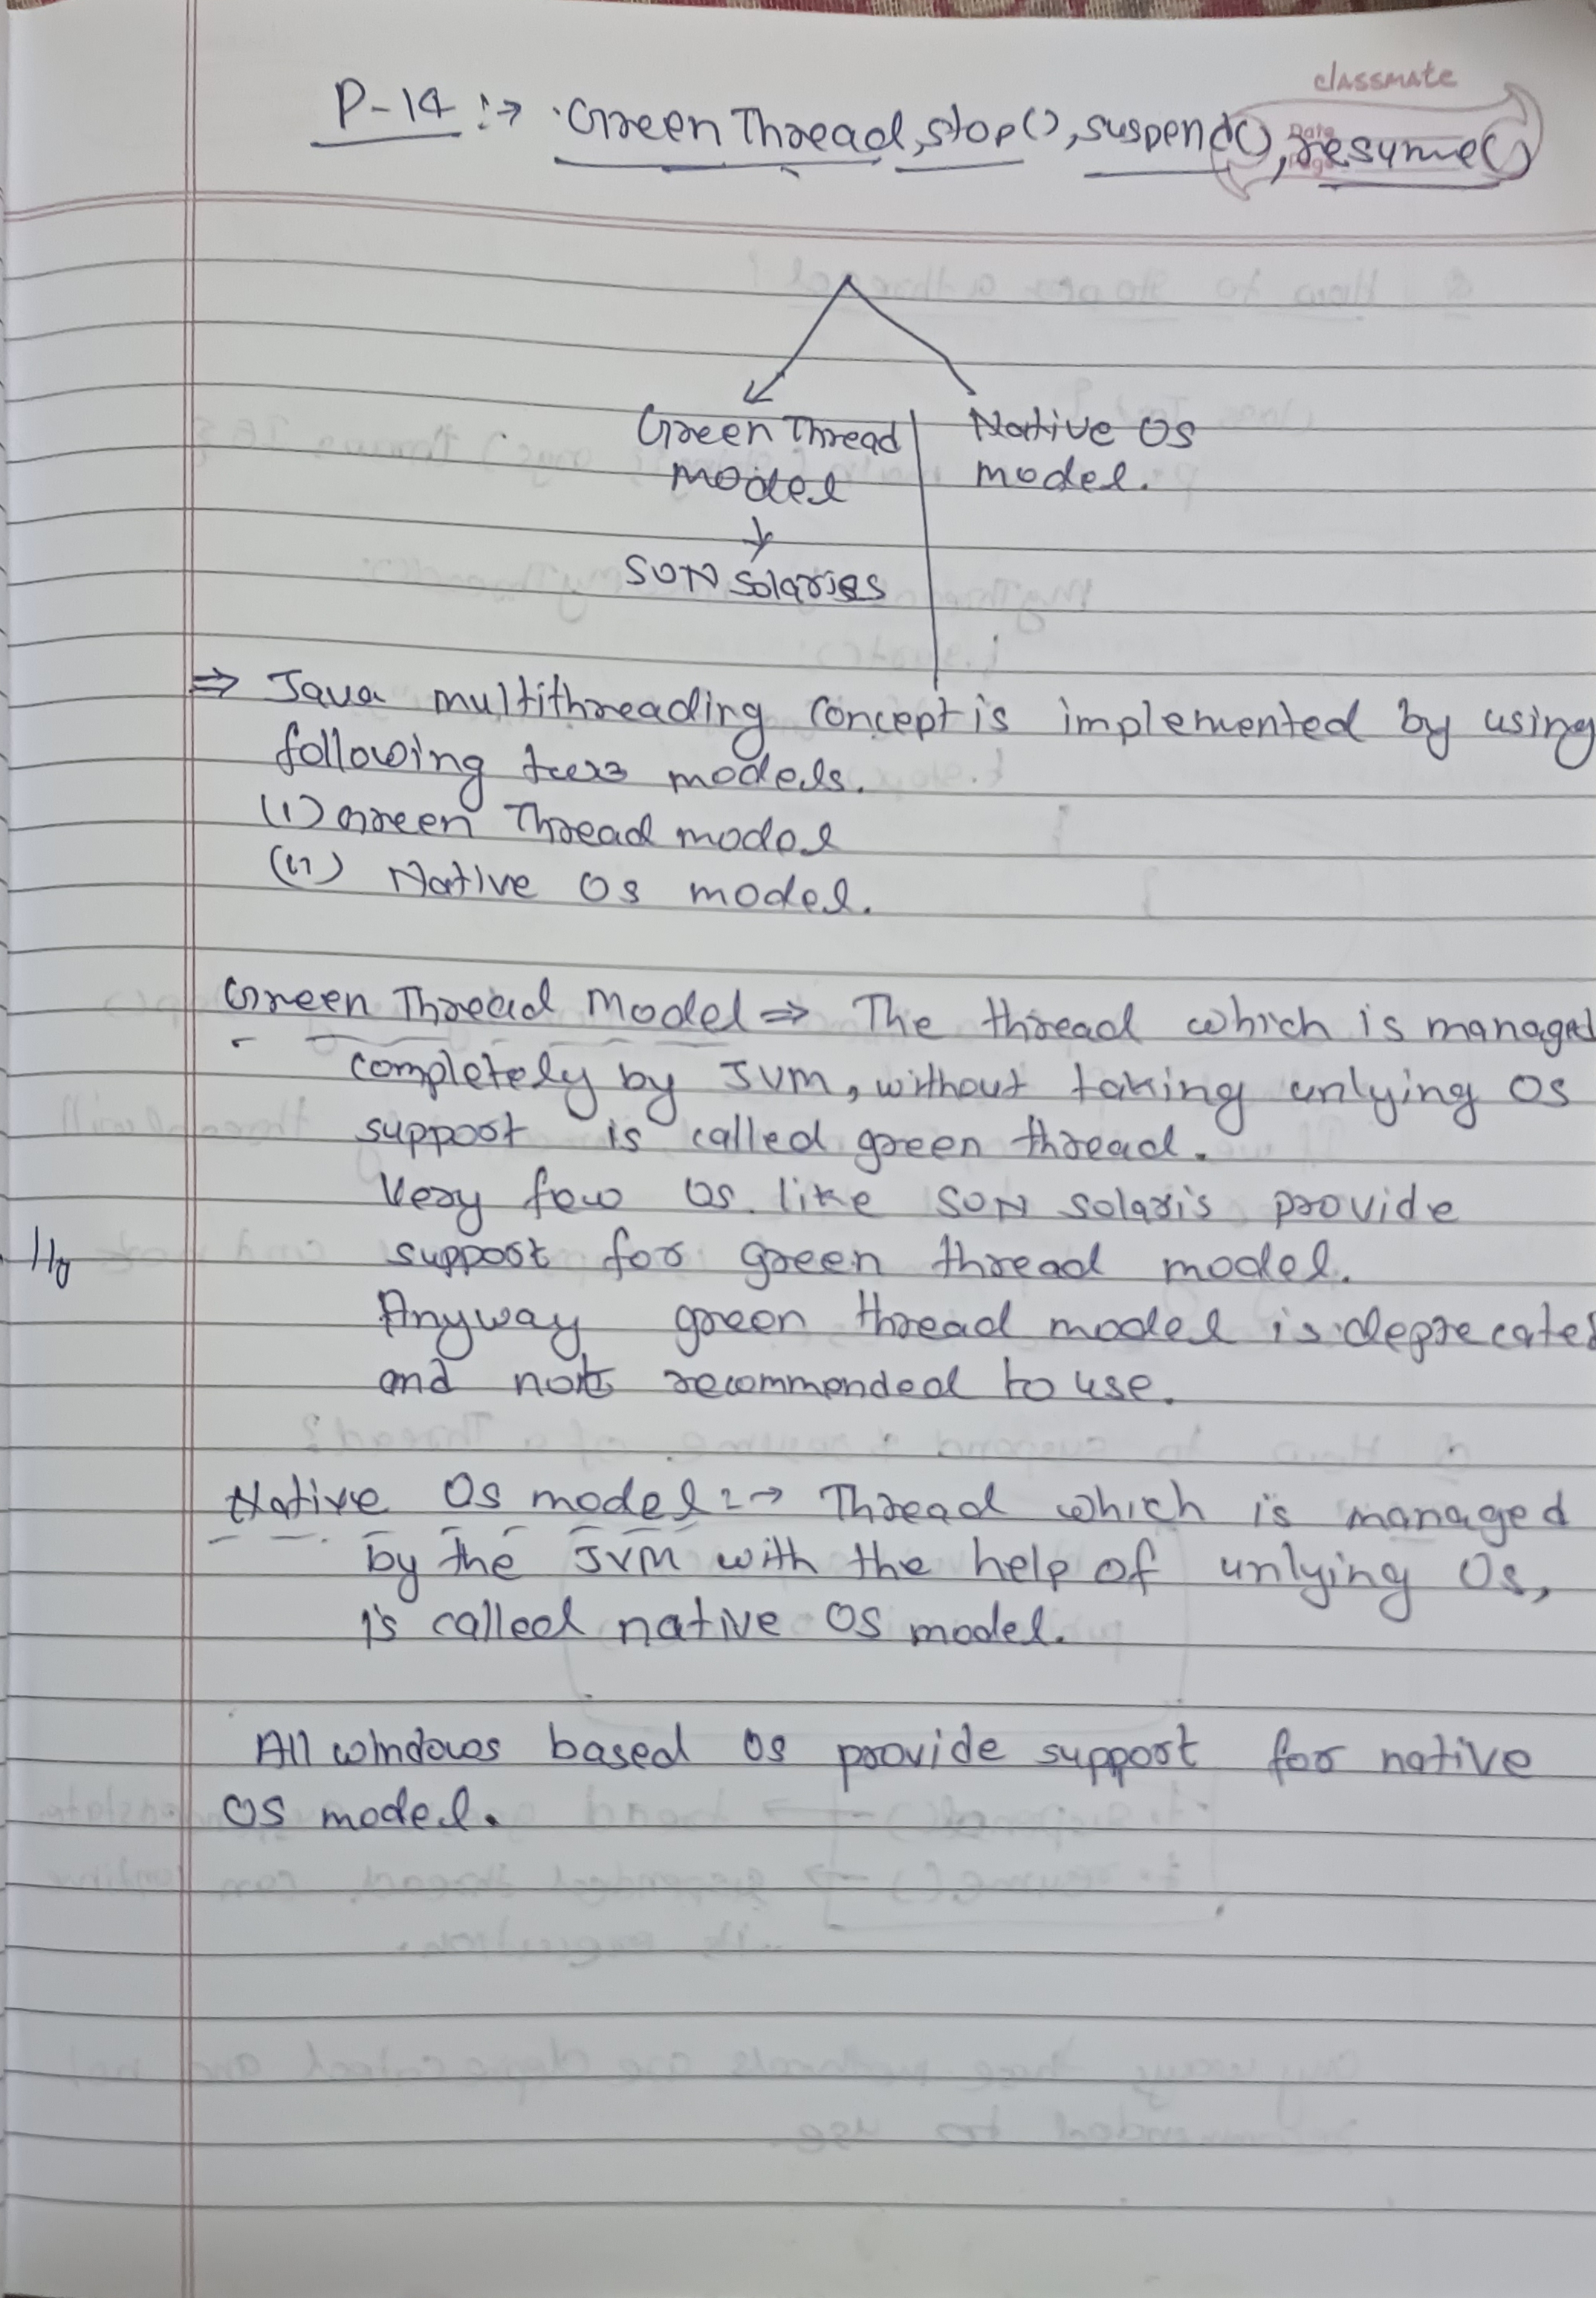 classmate
Date
Page
P-14 :→ Green Thread, stop(), suspend(), resume()
Green Thread model
Native OS model.
↓
SUN Solaries
⇒ Java multithreading concept is implemented by using
following two models.
(i) Green Thread model
(ii) Native OS model.
Green Thread Model ⇒ The thread which is managed
completely by JVM, without taking unlying OS
support is called green thread.
Very few OS. like SUN solaris provide
support for green thread model.
Anyway green thread model is deprecated
and not recommended to use.
Native OS model :→ Thread which is managed
by the JVM with the help of unlying OS,
is called native OS model.
All windows based OS provide support for native
OS model.